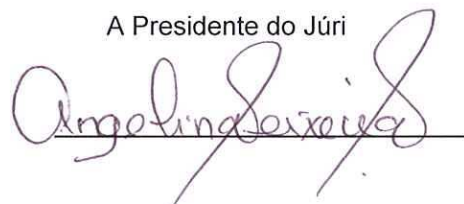 A Presidente do Júri
Angelina Teixeira